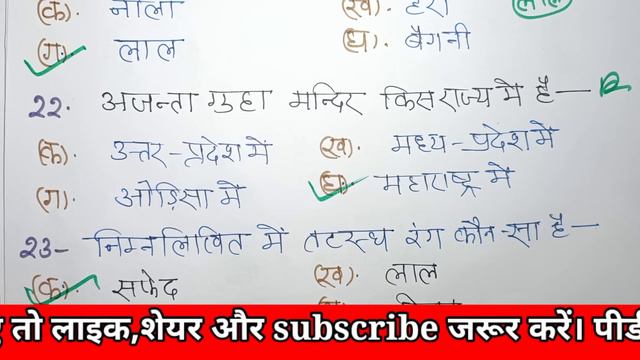 (क). नीला (ख). हरा
(ग). लाल (घ). बैगनी
22. अजन्ता गुहा मन्दिर किस राज्य में है—
(क). उत्तर-प्रदेश में (ख). मध्य-प्रदेश में
(ग). ओड़िसा में (घ). महाराष्ट्र में
23- निम्नलिखित में तटस्थ रंग कौन-सा है—
(क). सफेद (ख). लाल
तो लाइक,शेयर और subscribe जरूर करें। पीडी